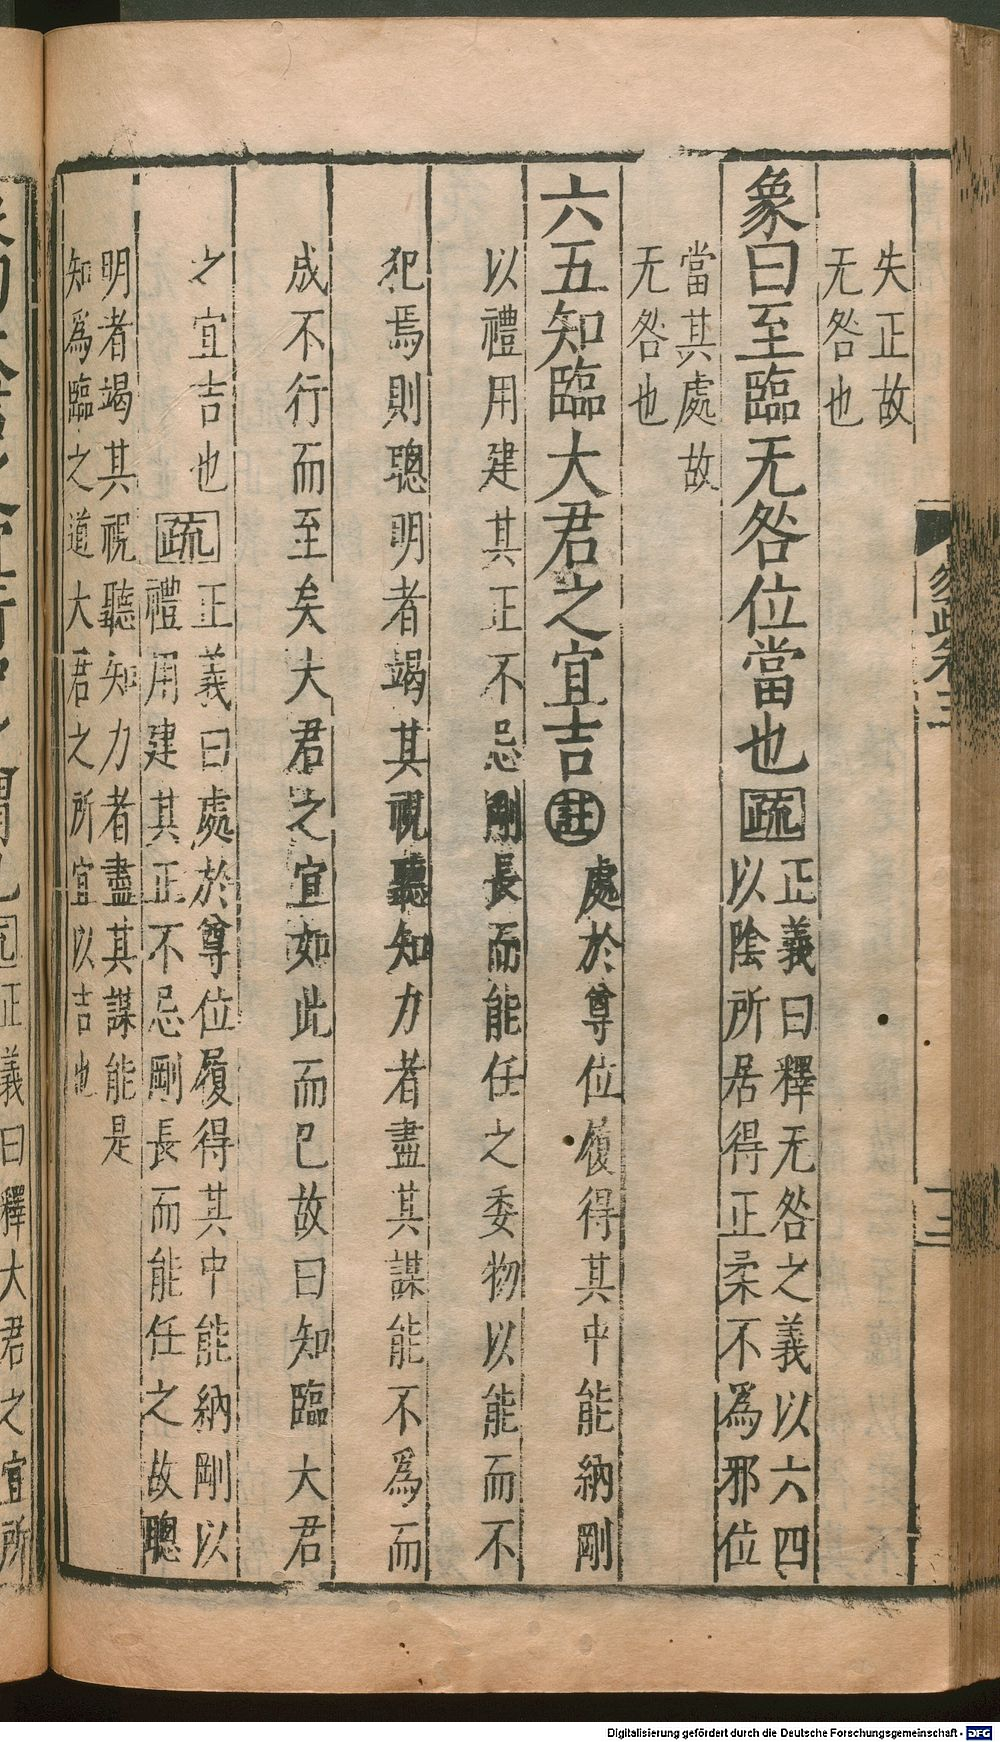 失正故
无咎也
象曰至臨无咎位當也疏
正義曰釋无咎之義以六四
以陰所居得正柔不為邪位
當其處故
无咎也
六五知臨大君之宜吉註
處於尊位履得其中能納剛
以禮用建其正不忌剛長而能任之委物以能而不
犯焉則聰明者竭其視聽知力者盡其謀能不為而
成不行而至矣大君之宜如此而已故曰知臨大君
之宜吉也疏
正義曰處於尊位履得其中能納剛以
禮用建其正不忌剛長而能任之故聰
明者竭其視聽知力者盡其謀能是
知為臨之道大君之所宜以吉也
正義曰釋大君之宜所
Digitalisierung gefördert durch die Deutsche Forschungsgemeinschaft - DFG